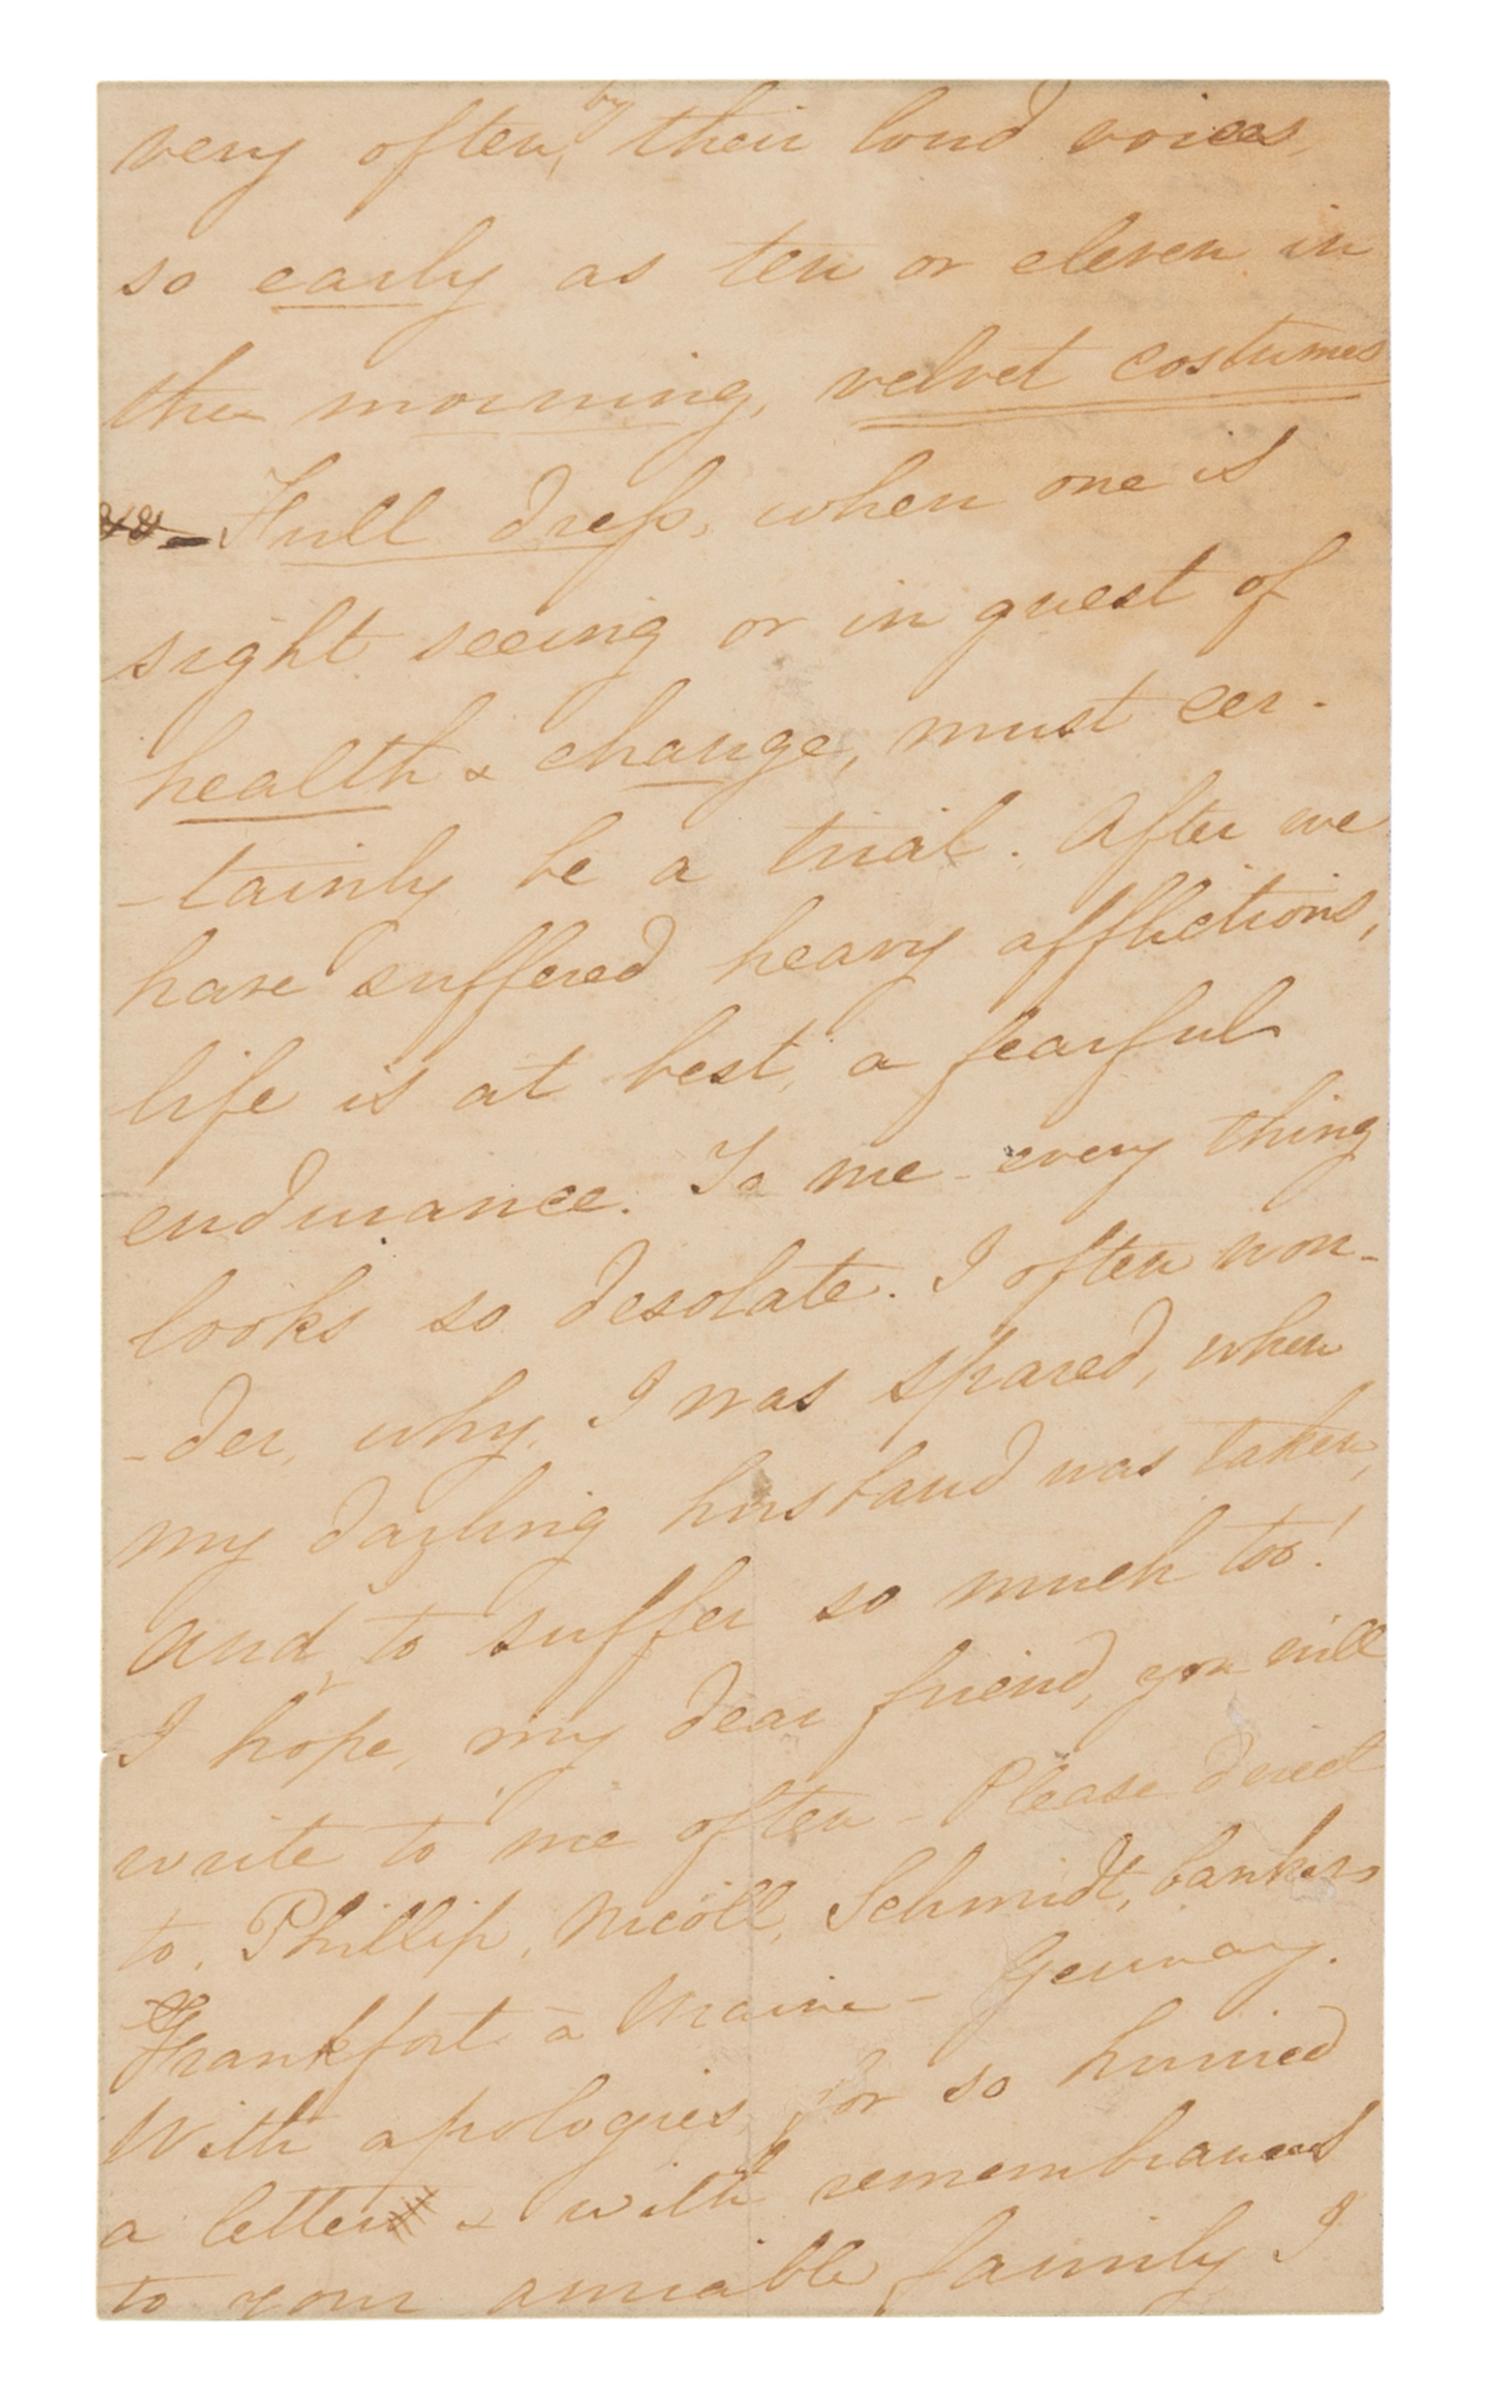 very often, by their loud voices,
so early as ten or eleven in
the morning, velvet costumes
- Full dress, when one is
sight seeing or in quest of
health & change, must cer-
-tainly be a trial. After we
have suffered heavy afflictions,
life is at best, a fearful
endurance. To me - every thing
looks so desolate. I often won-
-der, why, I was spared, when
my darling husband was taken,
and, to suffer so much too!
I hope, my dear friend, you will
write to me often - Please direct
to, Phillip, Nicoll, Schmidt, bankers
Frankfort a Maine - Germany.
With apologies, for so hurried
a letter & with remembrances
to your amiable family I